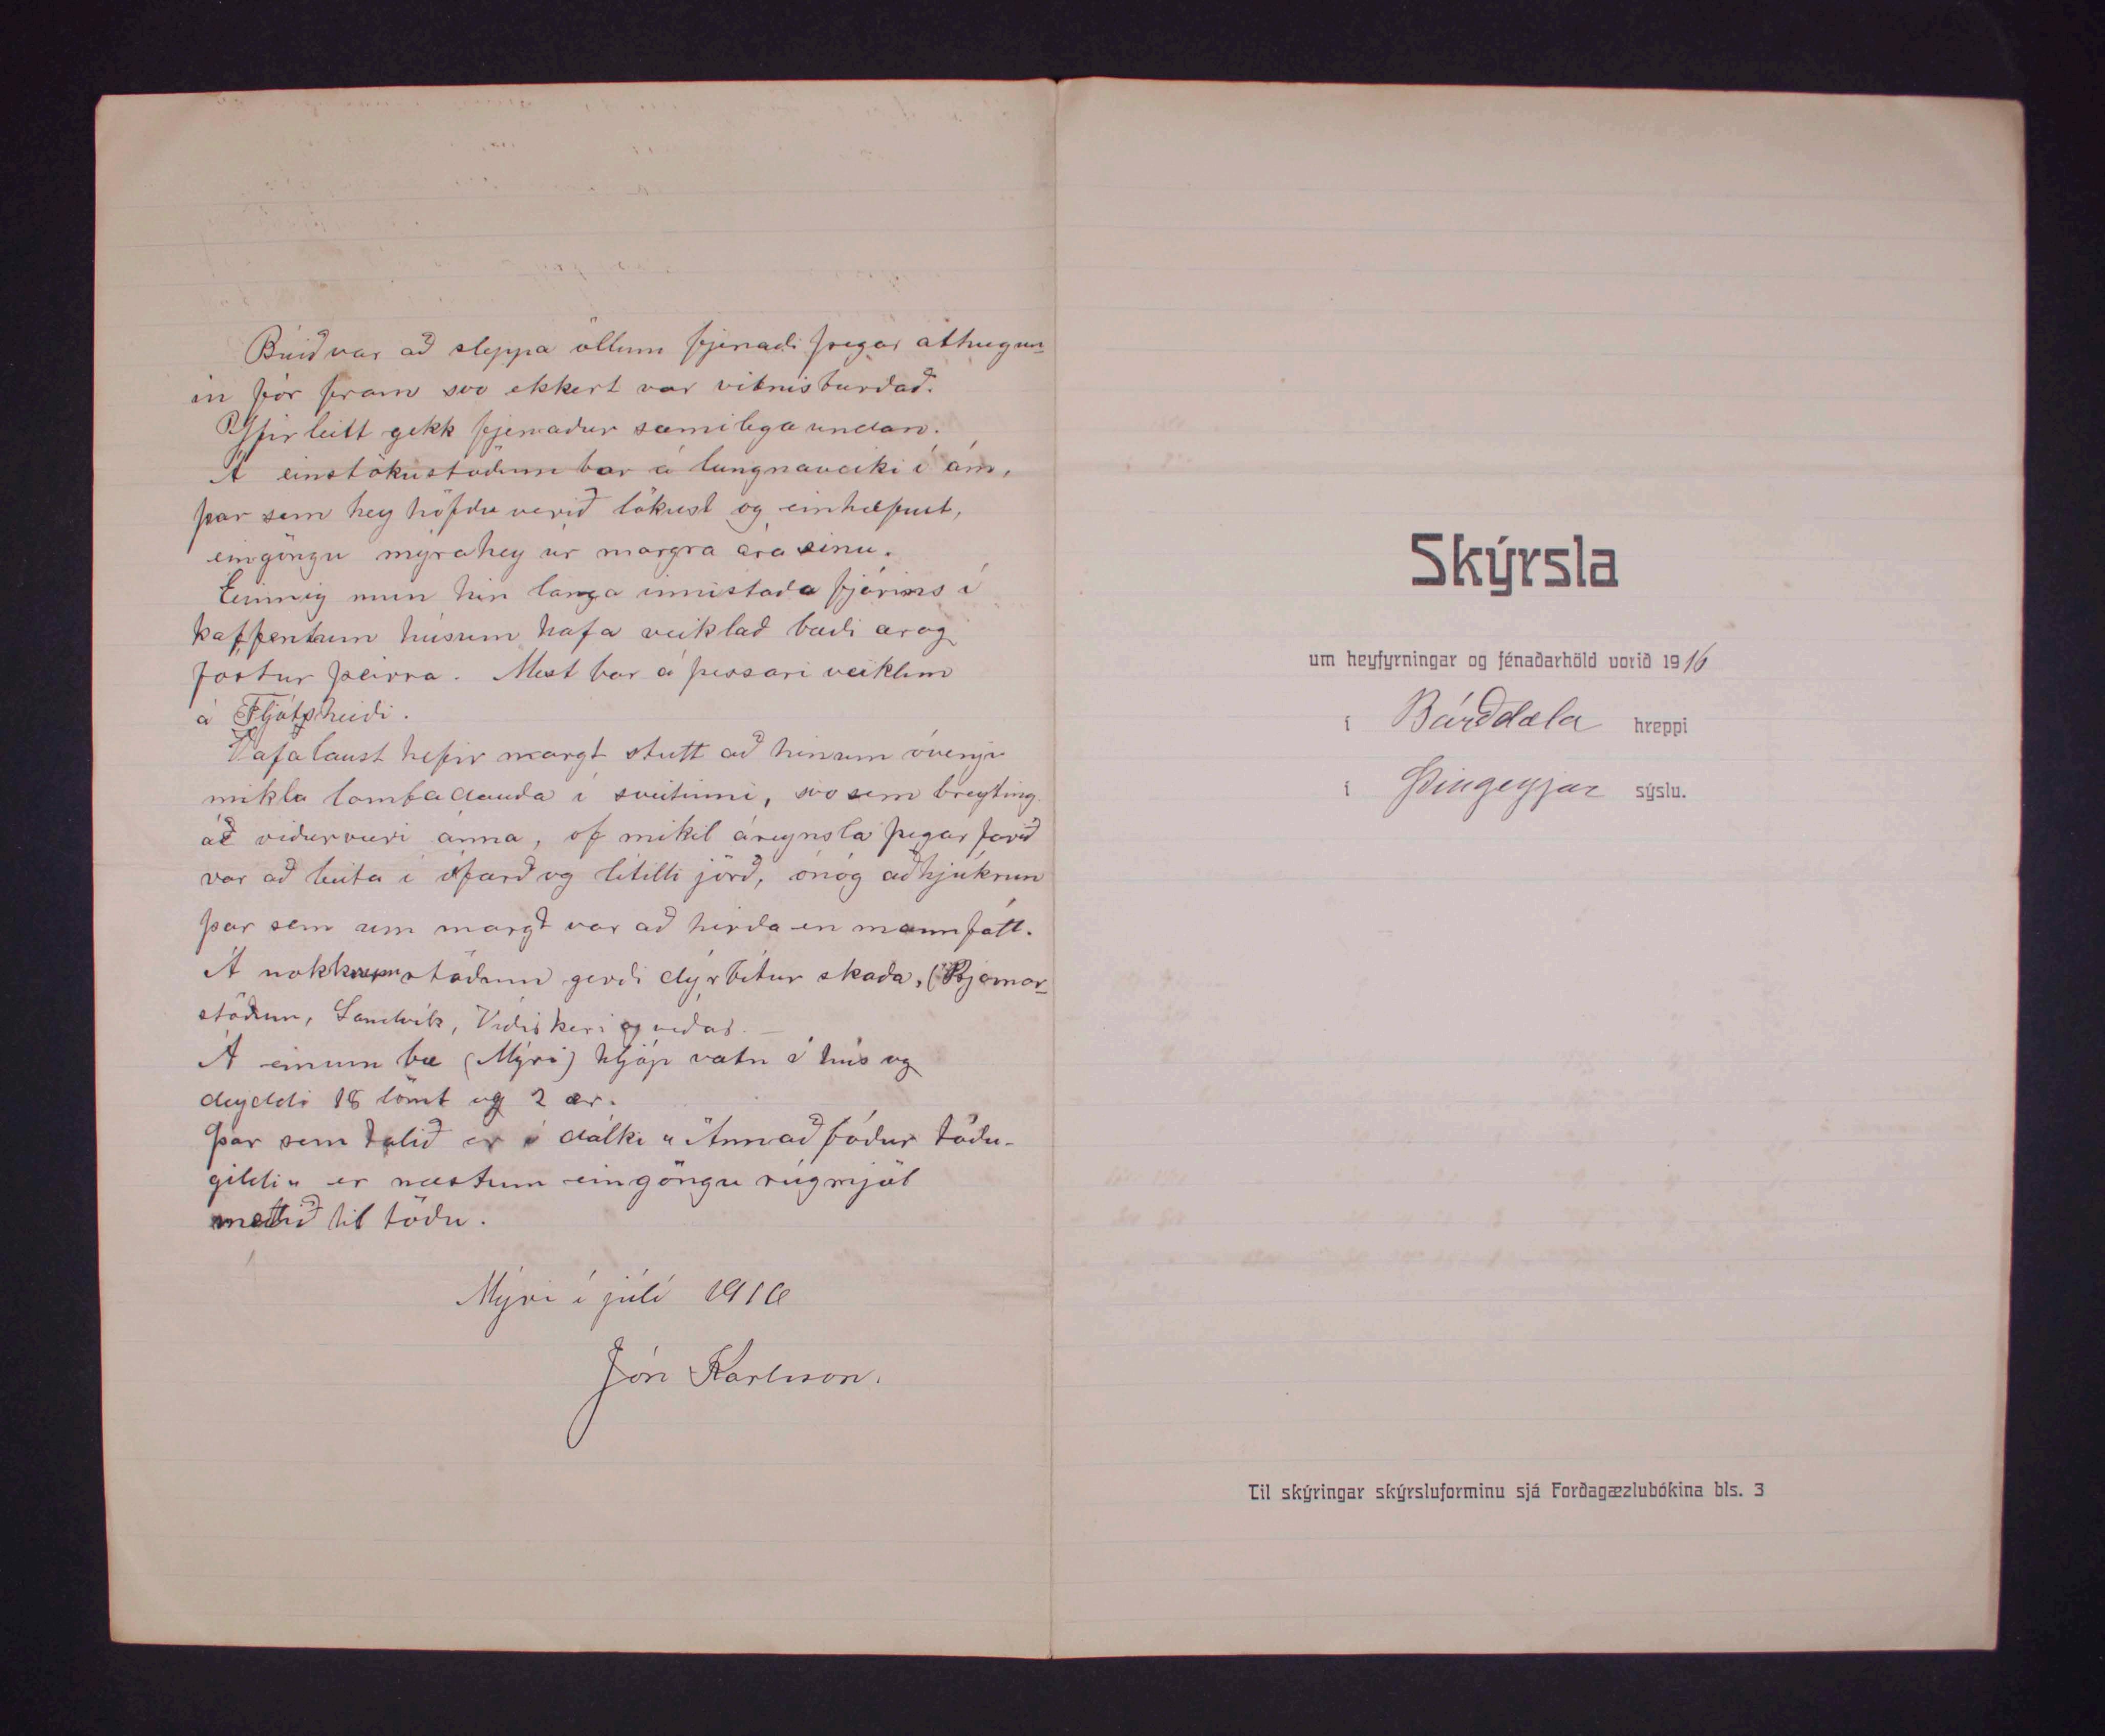 Búið var að sleppa öllum fjenaði þegar athugun-
in fór fram svo ekkert var vitnisburðað.
Yfirleitt gekk fjenaður sæmilega undan.
Á einstökustöðum bar á lungnaveiki í ám,
þar sem hey höfðu verið lökust og einhæfust,
eingöngu mýrahey úr margra ára sinu.
Einnig mun hin langa innistaða fjárins í
kaffentum húsum hafa veiklað bæði ær og
fóstur þeirra. Mest bar á þessari veiklun
á Fljótsheiði.
Vafalaust hefir margt stutt að hinum óvenju
mikla lambadauða í sveitinni, svo sem breyting
á viðurværi ánna, of mikil áreynsla þegar farið
var að beita í ófærð og lítilli jörð, ónóg aðhjúkrun
þar sem um margt var að hirða en mannfátt.
Á nokkrum stöðum gerði dýrbítur skaða, (Bjarnar-
stöðum, Sandvík, Víðiskeri og víðar.
Á einum bæ (Mýri) hljóp vatn í hús og
deyddi 18 lömb og 2 ær.
Þar sem talið er í dálki „Annað fóður töðu-
gildi" er næstum eingöngu rúgmjöl
metið til töðu.
Mýri í júlí 1916
Jón Karlsson.
Skýrsla
um heyfyrningar og fénaðarhöld vorið 1916
í Bárðdæla hreppi
í Þingeyjar sýslu.
Til skýringar skýrsluforminu sjá Forðagæzlubókina bls. 3